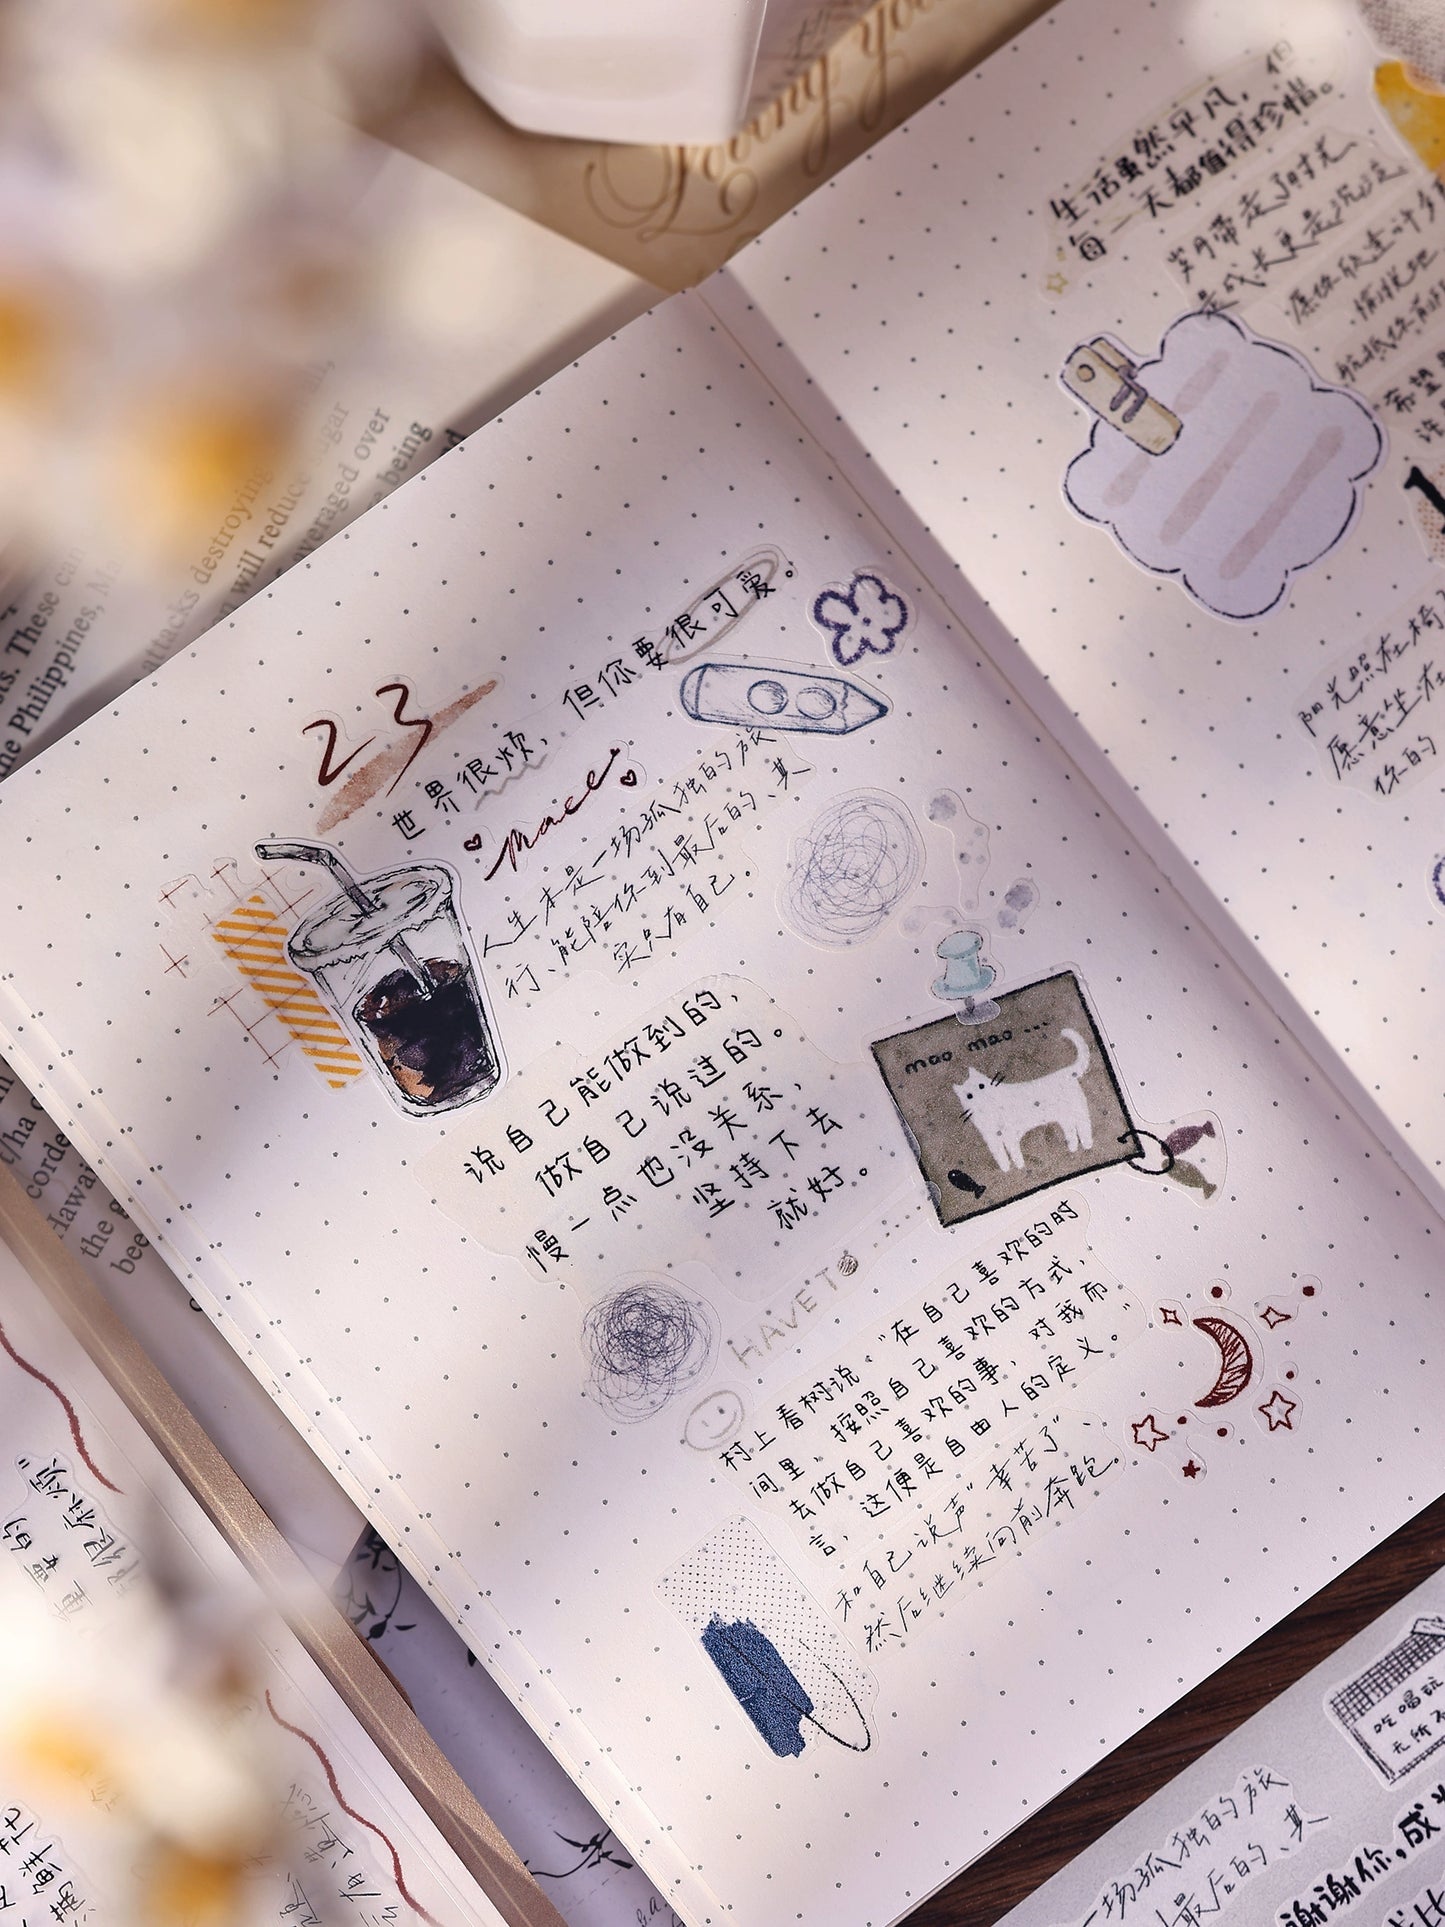 Loving You
生活虽然平凡，但
每一天都值得珍惜。
岁月带走了时光、
是成长更是沉淀
愿你
希望
阳光照在椅
愿意坐在
你的
23
世界很烦，但你要很可爱。
人生本是一场孤独的旅
行、能陪你到最后的、其
实只有自己。
说自己能做到的，
做自己说过的。
慢一点也没关系，
坚持下去
就好。
mao mao ...
HAVE TO ......
村上春树说："在自己喜欢的时
间里，按照自己喜欢的方式，
去做自己喜欢的事，对我而
言，这便是自由人的定义。"
和自己说声"辛苦了"、
然后继续向前奔跑。
sugar
attacks destroying
will reduce
averaged over
being
These can
Philippines,
c/ha
corde
Hawai
the
bee
很麻烦"
吃喝玩
一场孤独的旅
最后的、其
谢谢你，成